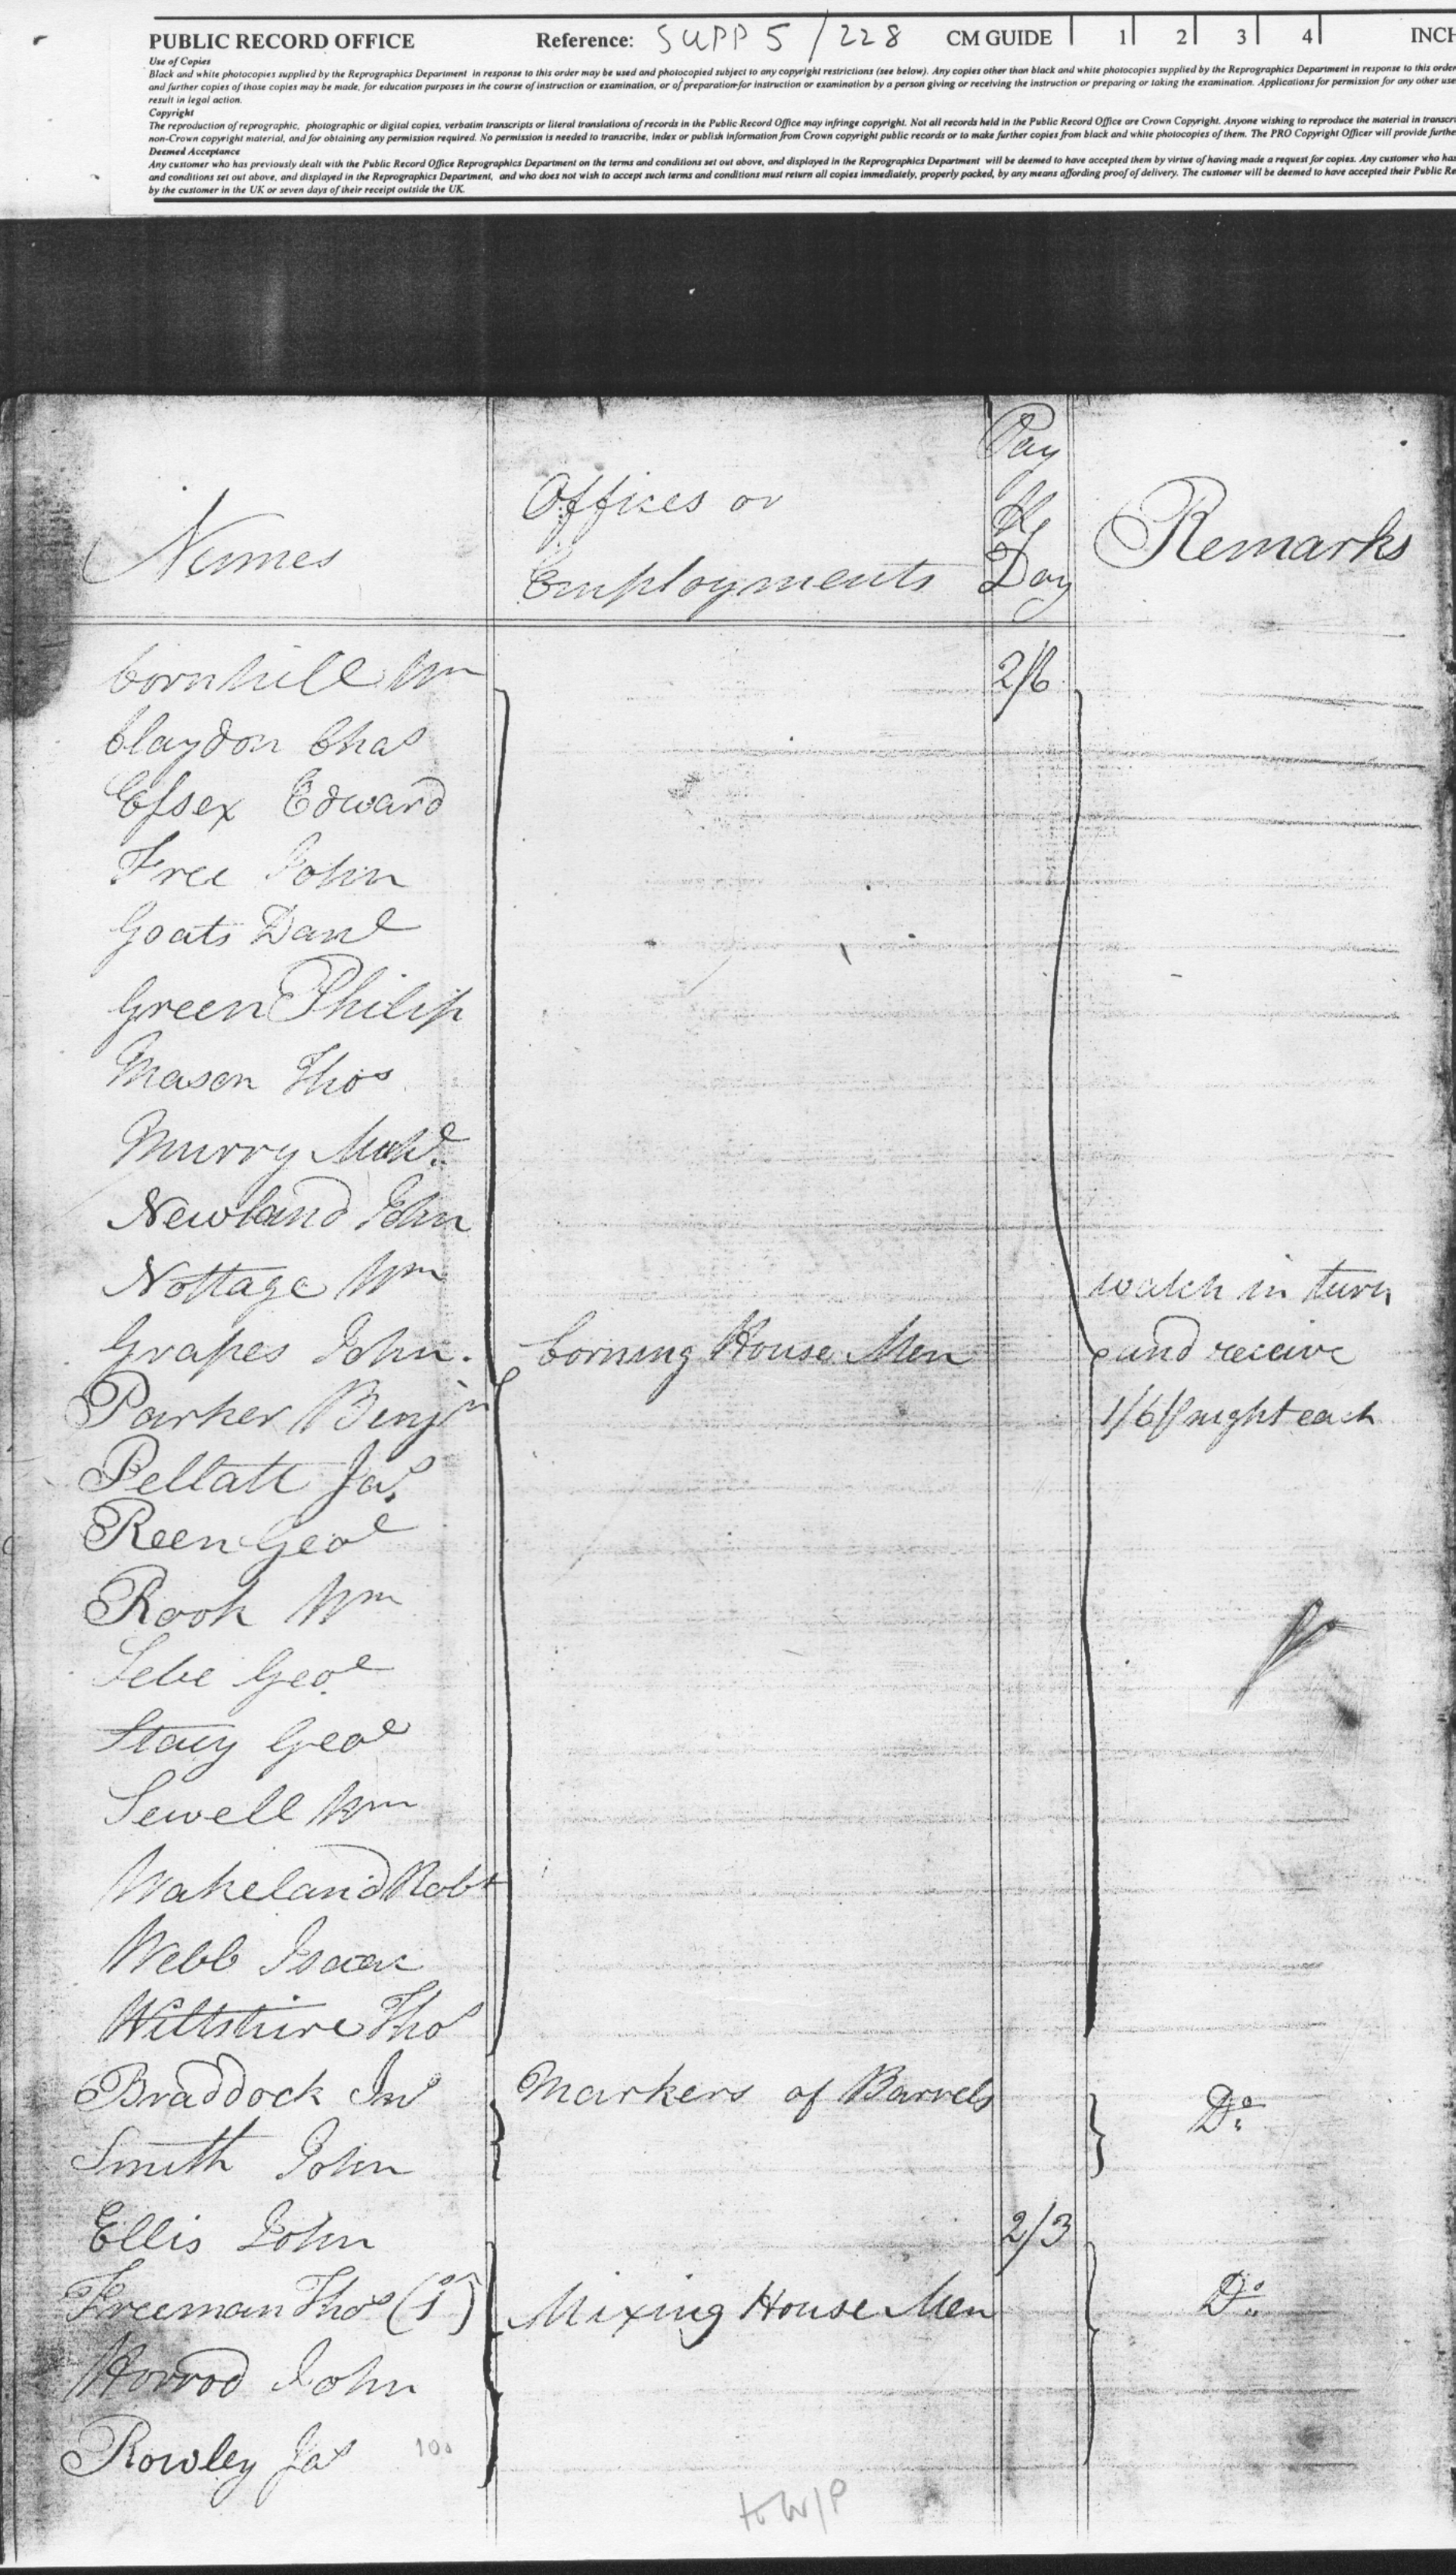 PUBLIC RECORD OFFICE Reference: SUPP 5 / 228 CM GUIDE 1 2 3 4 INCH
Use of Copies
Black and white photocopies supplied by the Reprographics Department in response to this order may be used and photocopied subject to any copyright restrictions (see below). Any copies other than black and white photocopies supplied by the Reprographics Department in response to this order
and further copies of those copies may be made, for education purposes in the course of instruction or examination, or of preparation for instruction or examination by a person giving or receiving the instruction or preparing or taking the examination. Applications for permission for any other use
result in legal action.
Copyright
The reproduction of reprographic, photographic or digital copies, verbatim transcripts or literal translations of records in the Public Record Office may infringe copyright. Not all records held in the Public Record Office are Crown Copyright. Anyone wishing to reproduce the material in transcri
non-Crown copyright material, and for obtaining any permission required. No permission is needed to transcribe, index or publish information from Crown copyright public records or to make further copies from black and white photocopies of them. The PRO Copyright Officer will provide furthe
Deemed Acceptance
Any customer who has previously dealt with the Public Record Office Reprographics Department on the terms and conditions set out above, and displayed in the Reprographics Department will be deemed to have accepted them by virtue of having made a request for copies. Any customer who has
and conditions set out above, and displayed in the Reprographics Department, and who does not wish to accept such terms and conditions must return all copies immediately, properly packed, by any means affording proof of delivery. The customer will be deemed to have accepted their Public Re
by the customer in the UK or seven days of their receipt outside the UK.
Names Offices or Employments Pay Day Remarks
Cornhill Wm 2/6
Claydon Chas
Essex Edward
Free John
Goats Danl
Green Philip
Mason Thos
Murry Michl
Newland John
Nottage Wm watch in turn
Grapes John. Corning House Men and receive
Parker Benjn 1/6 p night each
Pellatt Jas
Reen Geoe
Rook Wm
Sebe Geoe
Stacy Geoe
Sewell Wm
Wakeland Robt
Webb Isaac
Wiltshire Thos
Braddock Jno Markers of Barrels Do
Smith John
Ellis John 2/3
Freeman Thos (1) Mixing House Men Do
Horrod John
Rowley Jas 10.
to W/P